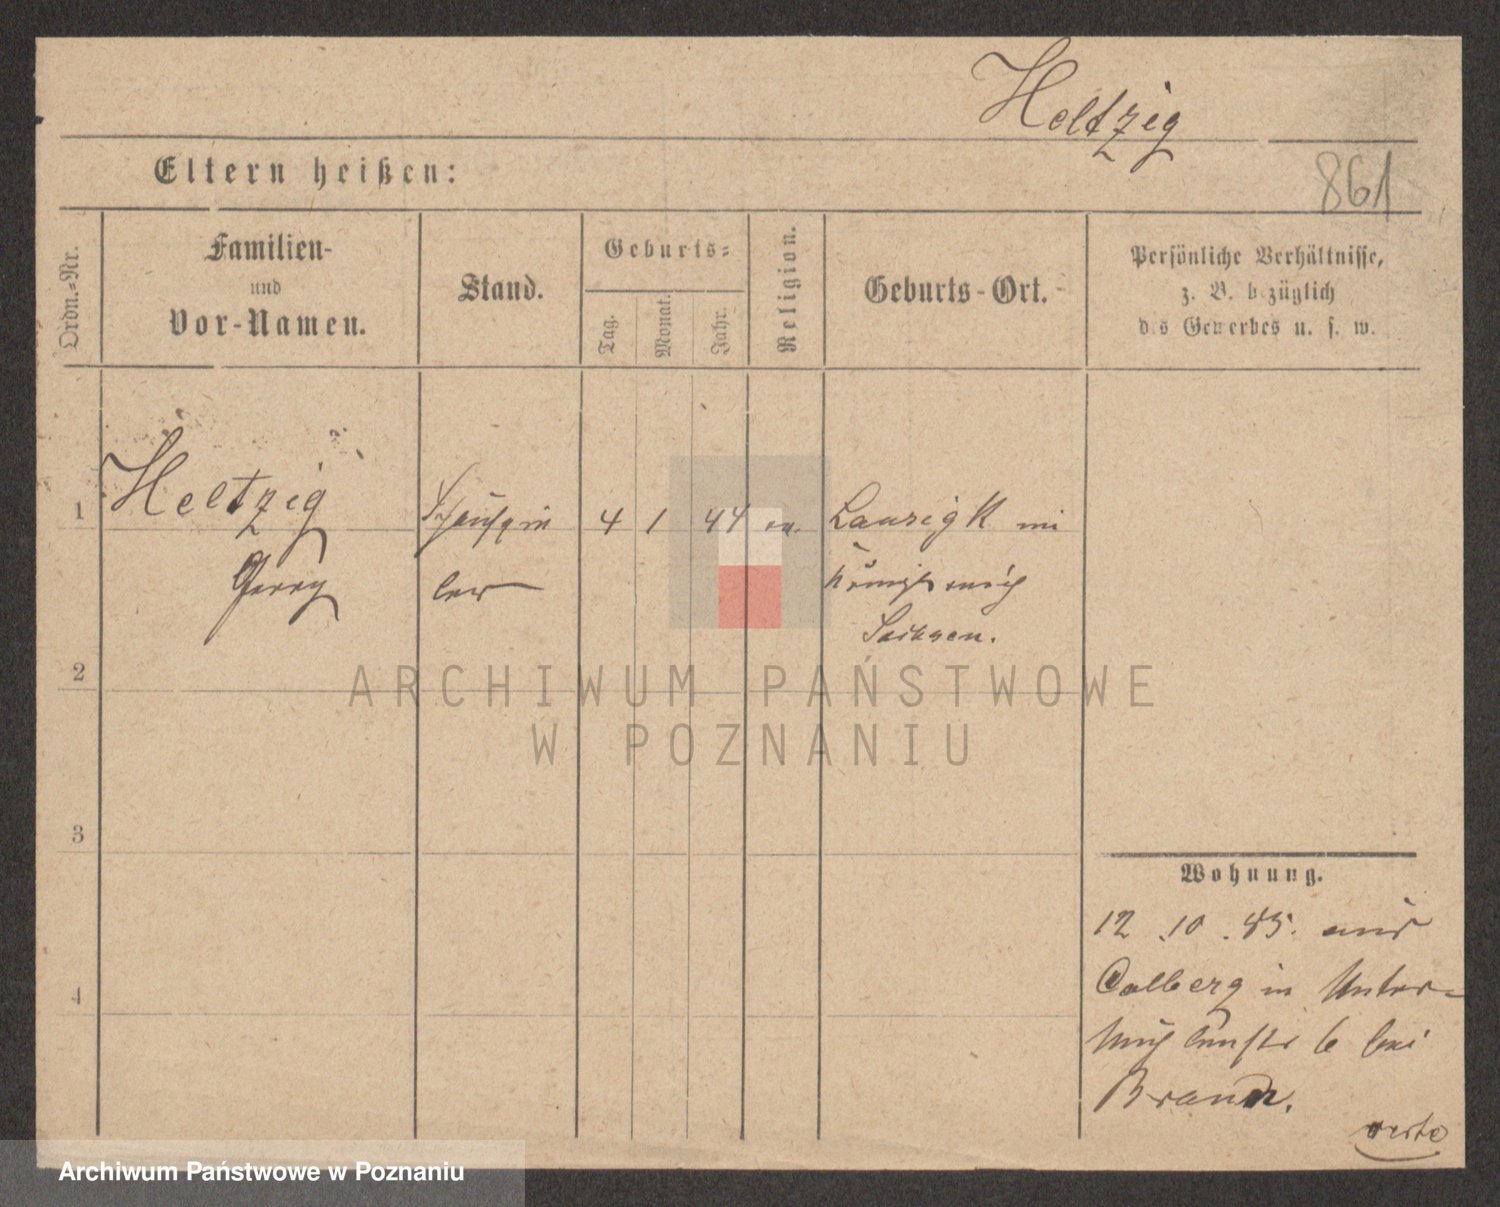 Heltzig
Eltern heißen:
861
Ordn.-Nr.
Familien-
und
Vor-Namen.
Stand.
Geburts-
Tag.
Monat.
Jahr.
Religion.
Geburts-Ort.
Persönliche Verhältnisse,
z. B. bezüglich
des Gewerbes u. s. w.
1 Heltzig Schauspie 4 1 44 ev. Lausigk im
Georg ler Königreich
Sachsen.
2
ARCHIWUM PAŃSTWOWE
W POZNANIU
3
Wohnung.
12.10.85. aus
Colberg in Unter-
6 bei
Brandt.
4
verte
Archiwum Państwowe w Poznaniu